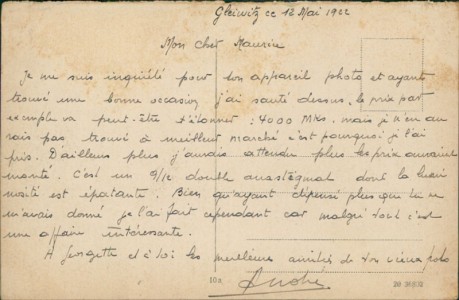 Gleiwitz ce 12 Mai 1922
Mon cher Maurice
Je me suis inquiété pour ton appareil photo et ayant
trouvé une bonne occasion j'ai sauté dessus, le prix par
exemple va peut-être t'étonner : 4000 Mks. mais je n'en au
rais pas trouvé à meilleur marché c'est pourquoi je l'ai
pris. D'ailleurs plus j'aurais attendu plus les prix auraient
monté. C'est un 9/12 double anastigmat dont la lumi
nosité est épatante. Bien qu'ayant dépensé plus que tu ne
m'avais donné je l'ai fait cependant car malgré tout c'est
une affaire intéressante.
A Georgette et à toi les meilleures amitiés de ton vieux poto
André